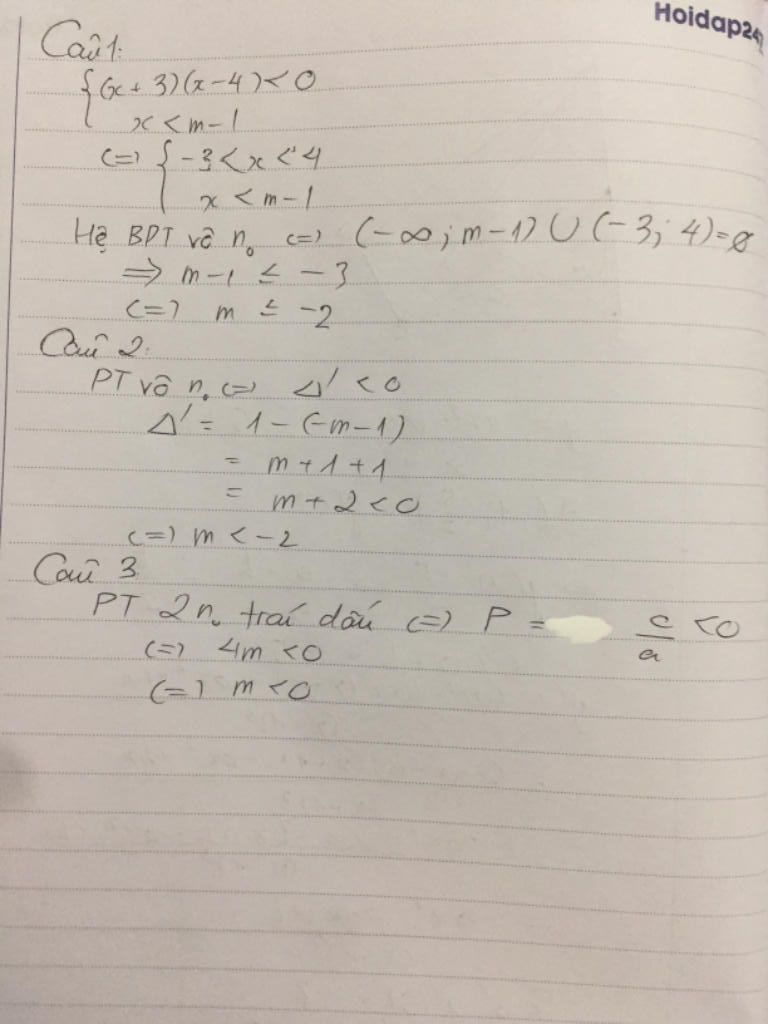 Hoidap247
Câu 1:
{(x + 3)(x - 4) < 0
x < m - 1
(=) { -3 < x < 4
x < m - 1
Hệ BPT vô n₀ (=) (-∞; m - 1) ∪ (-3; 4) = ∅
=> m - 1 ≤ -3
(=) m ≤ -2
Câu 2:
PT vô n₀ (=) Δ' < 0
Δ' = 1 - (-m - 1)
= m + 1 + 1
= m + 2 < 0
(=) m < -2
Câu 3
PT 2 n₀ trái dấu (=) P = c/a < 0
(=) 4m < 0
(=) m < 0